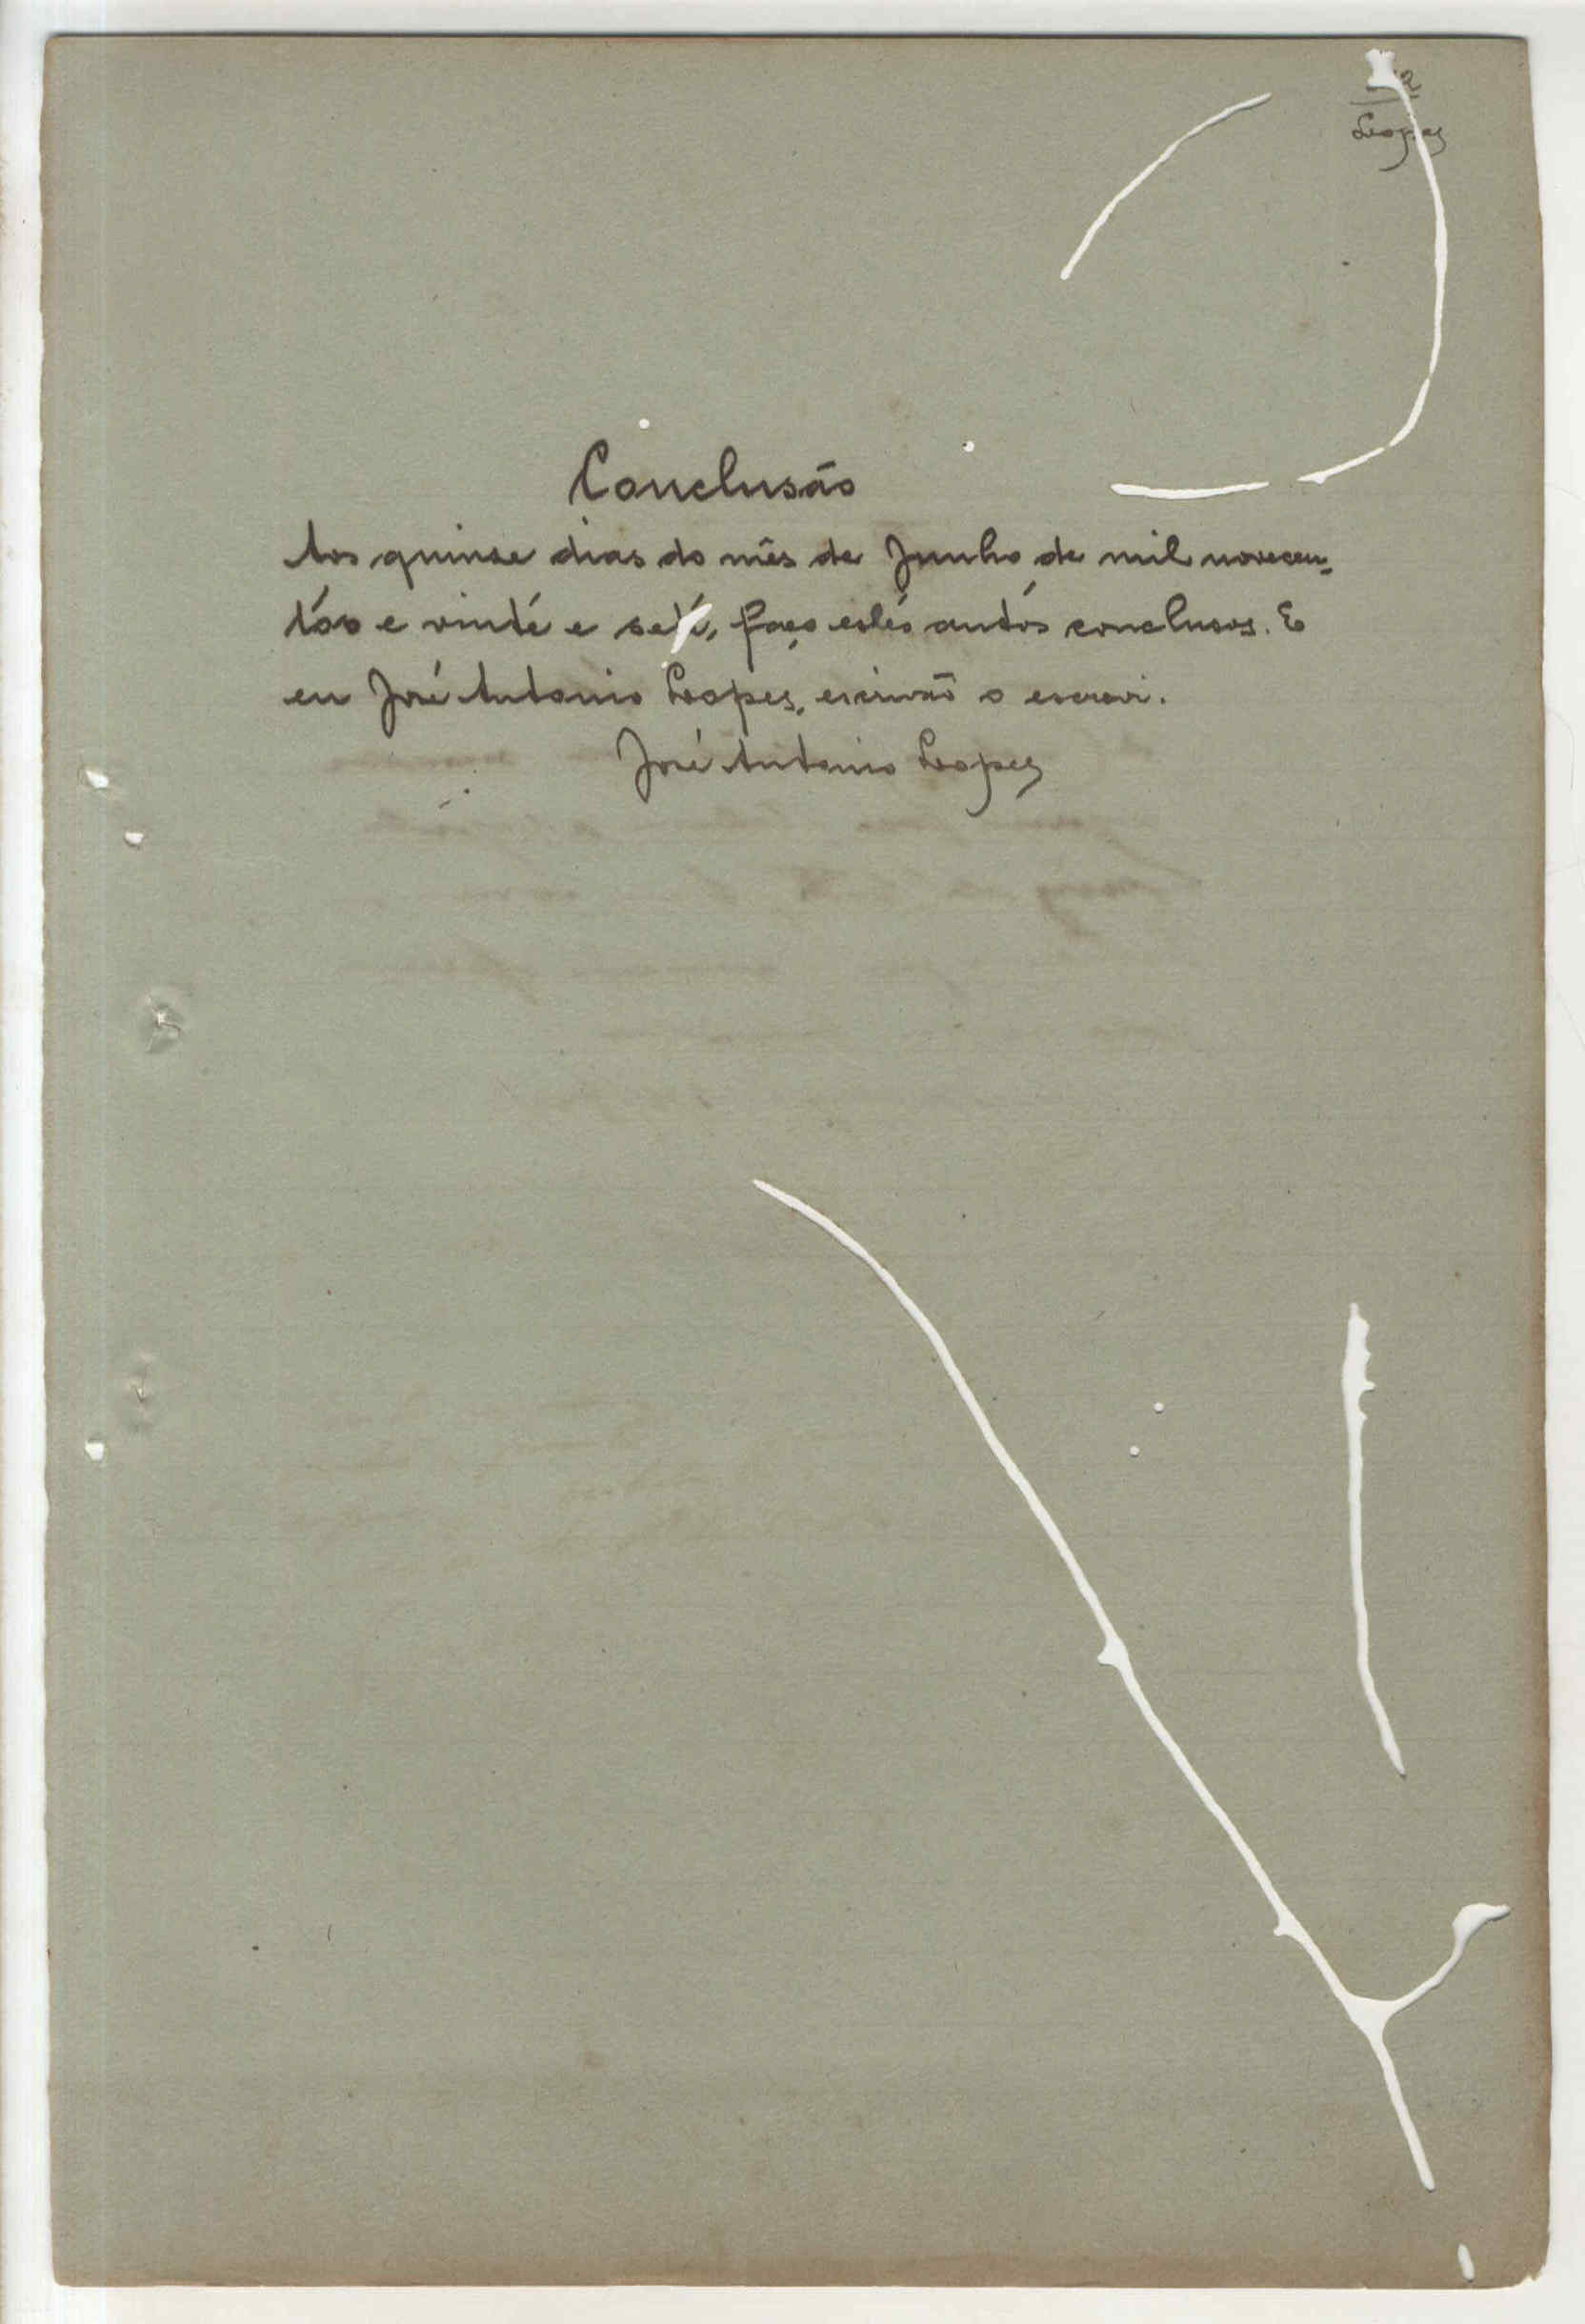 Lopes
Conclusão
Aos quinse dias do mês de Junho de mil novecen-
tos e vinte e sete, faço estes autos conclusos. E
eu José Antonio Lopes, escrivão o escrevi.
José Antonio Lopes